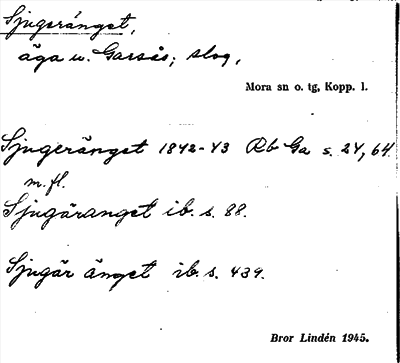 Sjugeränget,
äga u. Garsås; slog,
Mora sn o. tg, Kopp. l.
Sjugeränget 1842-43 Rb Ga s. 24, 64
m.fl.
Sjugäranget ib. s. 88.
Sjugär änget ib. s. 439.
Bror Lindén 1945.